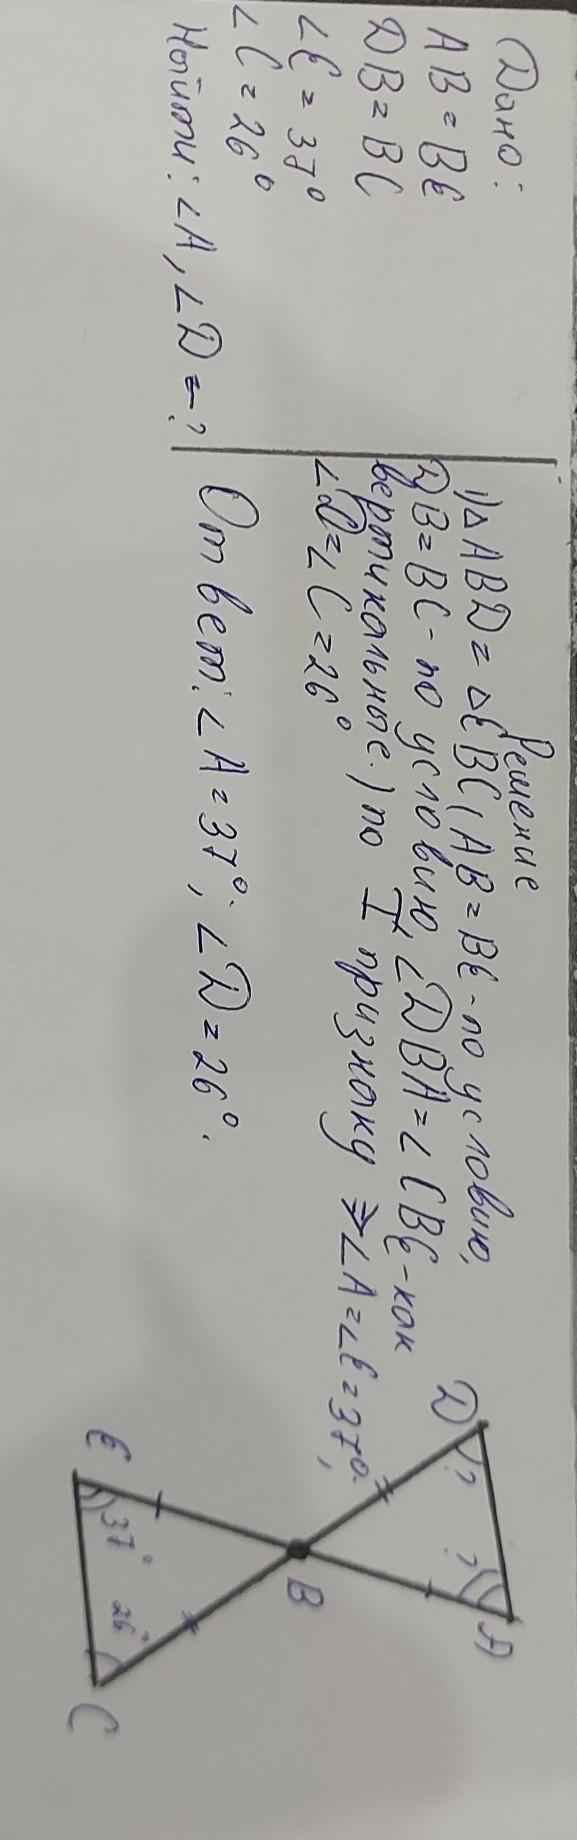 Дано:
AB = BE
DB = BC
∠E = 37°
∠C = 26°
Найти: ∠A, ∠D = ?
Решение
1) △ABD = △EBC (AB = BE - по условию,
DB = BC - по условию, ∠DBA = ∠CBE - как
вертикальные.) по I признаку ⇒ ∠A = ∠E = 37°,
∠D = ∠C = 26°
Ответ: ∠A = 37°; ∠D = 26°.
D
A
?
?
B
E
37°
26°
C